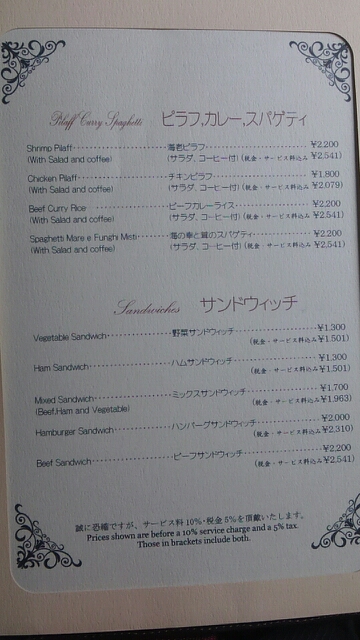 Pilaff Curry Spaghetti ピラフ,カレー,スパゲティ
Shrimp Pilaff 海老ピラフ ¥2,200
(With Salad and coffee) (サラダ、コーヒー付) (税金・サービス料込み ¥2,541)
Chicken Pilaff チキンピラフ ¥1,800
(With Salad and coffee) (サラダ、コーヒー付) (税金・サービス料込み ¥2,079)
Beef Curry Rice ビーフカレーライス ¥2,200
(With Salad and coffee) (サラダ、コーヒー付) (税金・サービス料込み ¥2,541)
Spaghetti Mare e Funghi Misti 海の幸と茸のスパゲティ ¥2,200
(With Salad and coffee) (サラダ、コーヒー付) (税金・サービス料込み ¥2,541)
Sandwiches サンドウィッチ
Vegetable Sandwich 野菜サンドウィッチ ¥1,300
(税金・サービス料込み ¥1,501)
Ham Sandwich ハムサンドウィッチ ¥1,300
(税金・サービス料込み ¥1,501)
Mixed Sandwich ミックスサンドウィッチ ¥1,700
(Beef,Ham and Vegetable) (税金・サービス料込み ¥1,963)
Hamburger Sandwich ハンバーグサンドウィッチ ¥2,000
(税金・サービス料込み ¥2,310)
Beef Sandwich ビーフサンドウィッチ ¥2,200
(税金・サービス料込み ¥2,541)
誠に恐縮ですが、サービス料10%・税金5%を頂戴いたします。
Prices shown are before a 10% service charge and a 5% tax.
Those in brackets include both.